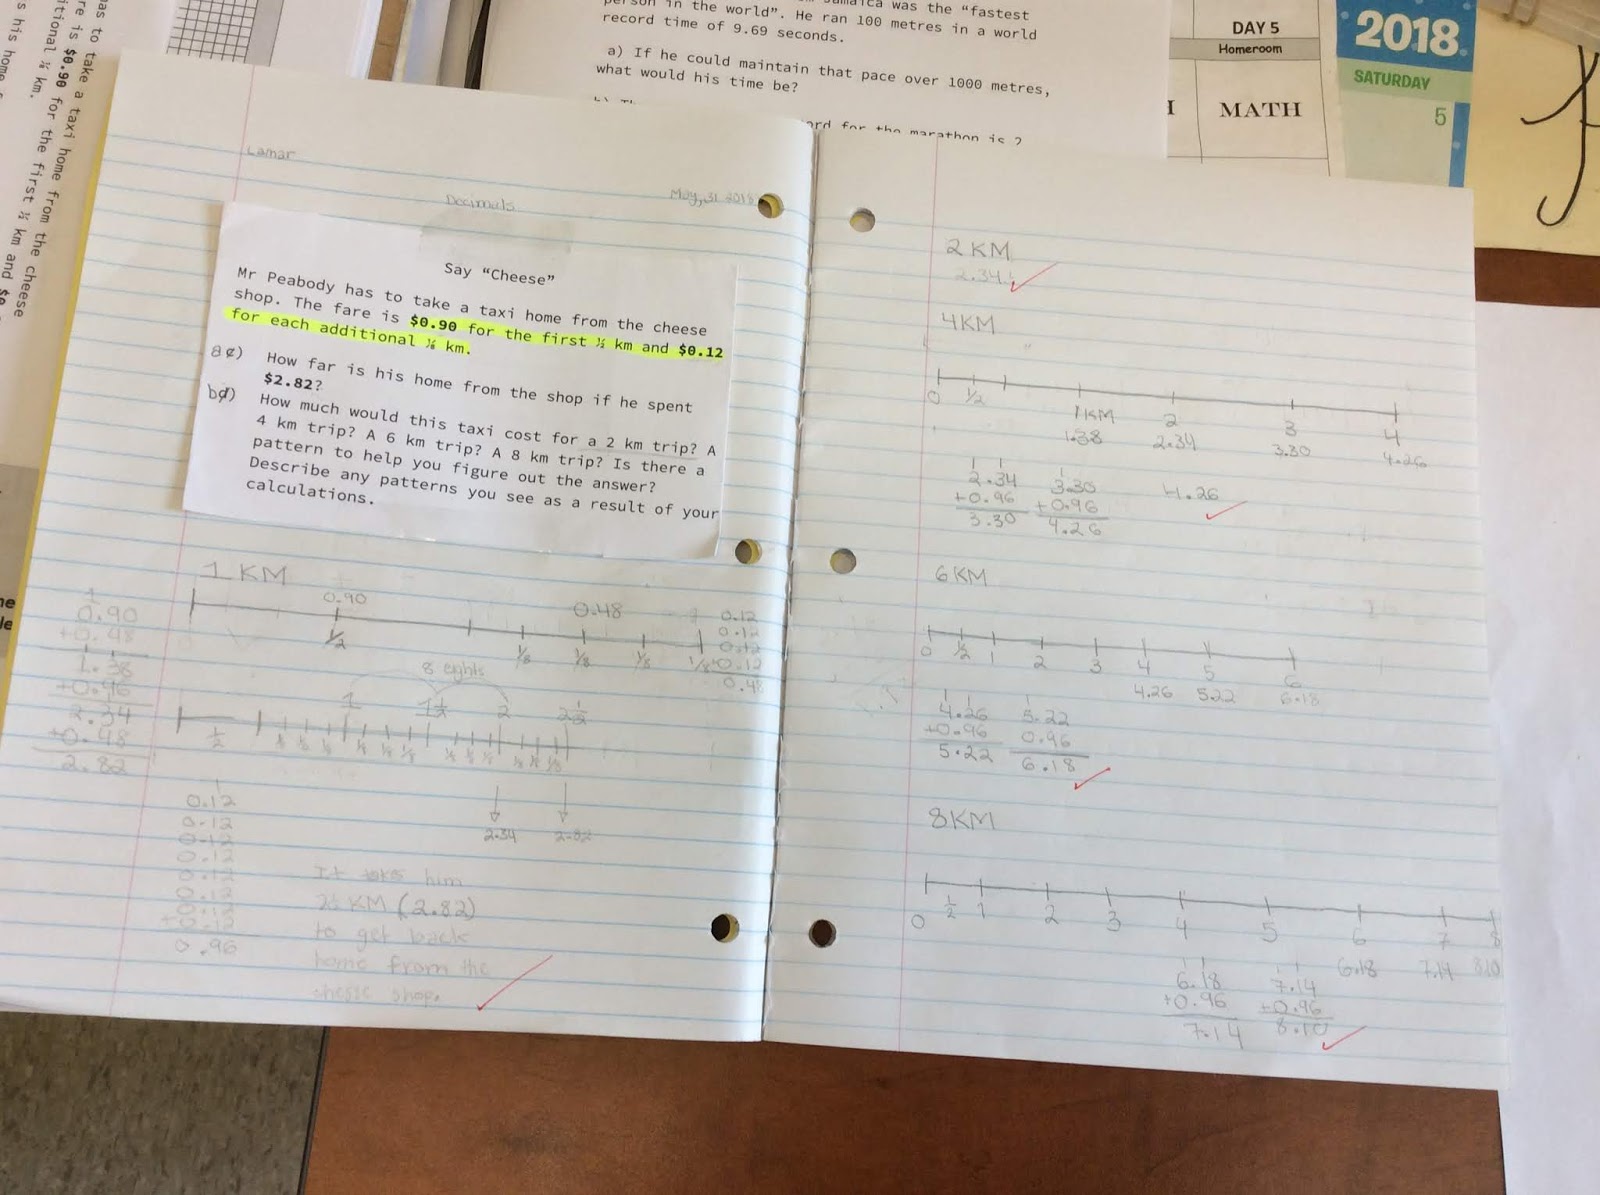 as to take a taxi home from the cheese
re is $0.90 for the first ½ km and $0
itional ⅛ km.
his home
Jamaica was the "fastest
person in the world". He ran 100 metres in a world
record time of 9.69 seconds.
a) If he could maintain that pace over 1000 metres,
what would his time be?
ord for the marathon is 2
DAY 5
Homeroom
MATH
2018
SATURDAY
5
Lamar
Decimals
May, 31 2018
Say "Cheese"
Mr Peabody has to take a taxi home from the cheese
shop. The fare is $0.90 for the first ½ km and $0.12
for each additional ⅛ km.
a) How far is his home from the shop if he spent
$2.82?
b) How much would this taxi cost for a 2 km trip? A
4 km trip? A 6 km trip? A 8 km trip? Is there a
pattern to help you figure out the answer?
Describe any patterns you see as a result of your
calculations.
1 KM
0.90
0.48
1/2
1/8 1/8 1/8 1/8
0.12
0.12
0.12
+0.12
0.48
0.90
+0.48
1.38
+0.96
2.34
+0.48
2.82
8 eghts
1 1½ 2 2½
1/2
1/8 1/8 1/8 1/8 1/8 1/8 1/8 1/8 1/8 1/8 1/8 1/8
2.34 2.82
0.12
0.12
0.12
0.12
0.12
0.12
0.12
+0.12
0.96
It takes him
2½ KM (2.82)
to get back
home from the
cheese shop.
2 KM
2.34
4KM
0 1/2 1KM 2 3 4
1.38 2.34 3.30 4.26
2.34 3.30 4.26
+0.96 +0.96
3.30 4.26
6KM
0 1/2 1 2 3 4 5 6
4.26 5.22 6.18
4.26 5.22
+0.96 0.96
5.22 6.18
8KM
0 1/2 1 2 3 4 5 6 7 8
6.18 7.14 8.10
6.18 7.14
+0.96 +0.96
7.14 8.10